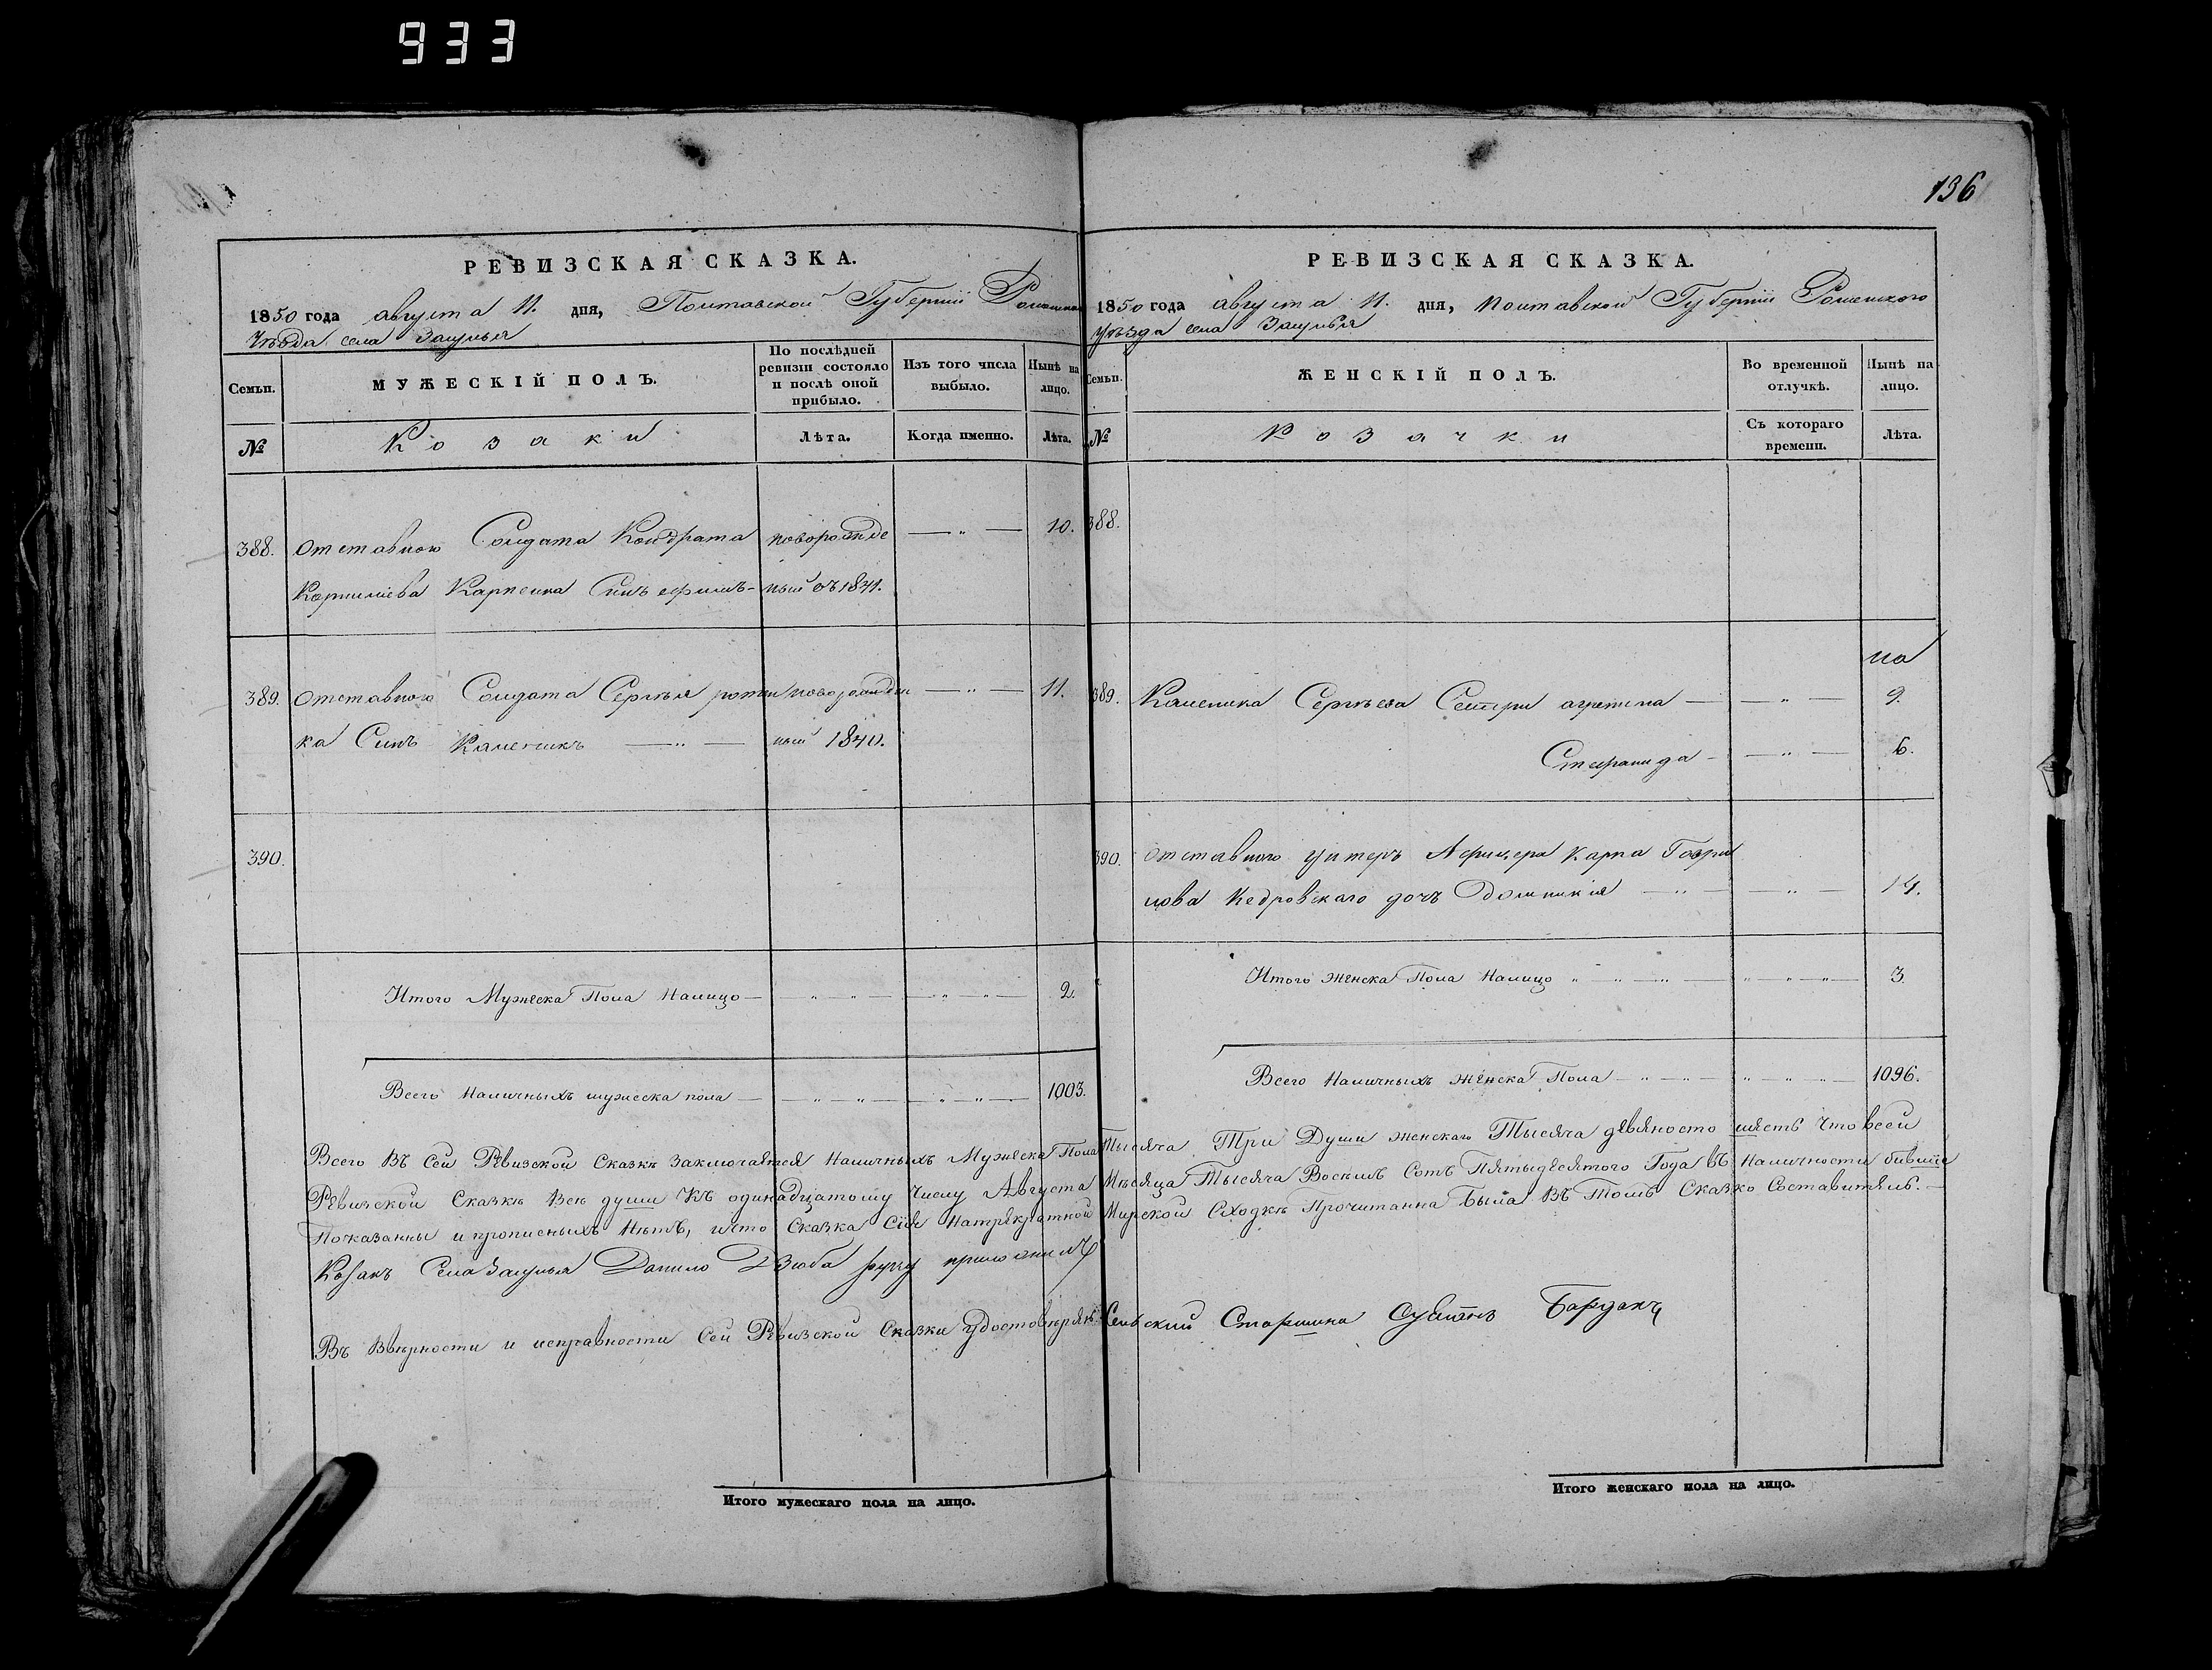 933
136
РЕВИЗСКАЯ СКАЗКА.
1850 года августа 11. дня, Полтавской Губернии
Уѣзда села Засулья
Семьи.
МУЖЕСКІЙ ПОЛЪ.
По послѣдней ревизіи состояло и послѣ оной прибыло.
Изъ того числа выбыло.
Нынѣ на лицо.
№
Козаки
Лѣта.
Когда именно.
Лѣта.
388. отставного Солдата Кондрата новорожде — „ — 10.
Корнилиева Карпенка Синъ ефимъ - ный съ 1841.
389. отставного Солдата Сергѣя — „ — 11.
ка Синъ Каленикъ — „ — ный 1840.
390.
Итого Мужеска Пола Налицо — 2.
Всего Наличныхъ мужеска пола — 1003.
РЕВИЗСКАЯ СКАЗКА.
1850 года августа 11. дня, Полтавской Губернии Роменского
Уѣзда села Засулья
Семьи.
ЖЕНСКІЙ ПОЛЪ.
Во временной отлучкѣ.
Нынѣ на лицо.
№
Козачки
Съ котораго времени.
Лѣта.
388.
389. Каленика Сергѣева Сестри — „ — 9.
Стефанида - — „ — 6.
390. отставного унтеръ Афицера Карпа Гаври
лова Кедровскаго дочъ Домникия — „ — 14.
Итого Женска Пола Налицо 3.
Всего Наличныхъ Женска Пола 1096.
Всего Въ Сей Ревизской Сказкѣ Заключается Наличныхъ Мужеска Пола Тысяча Три Души женскаго Тысяча девяносто шесть Что всей
Ревизской Сказкѣ Всѣ души Къ одинадцатому Числу Августа Мѣсяца Тысяча Восемъ Сотъ Пятьдесятого Года въ Наличности бившие
Показанны и прописныхъ Нѣтъ, ичто Сказка Сія Натрекратной Мирской Сходкѣ Прочитанна Была Въ Томъ Сказко Составитель. —
Козакъ Села Засулья Данило Дзюба руку приложилъ
Въ Вѣрности и исправности Сей Ревизской Сказки Удостовѣряю Сельский Старшина Бардакъ
Итого мужескаго пола на лицо.
Итого женскаго пола на лицо.